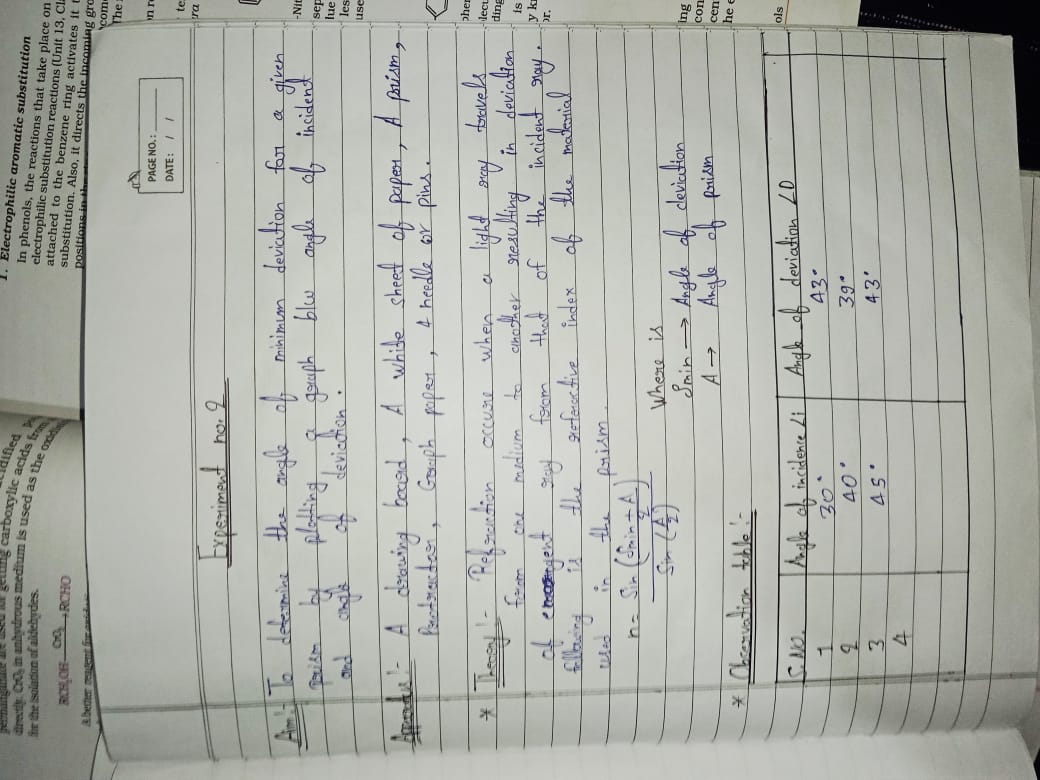 permanganate are used for getting carboxylic acids from
directly. CrO₃ in anhydrous medium is used as the
for the isolation of aldehydes.
RCH₂OH CrO₃→ RCHO
A better reagent for
1. Electrophilic aromatic substitution
In phenols, the reactions that take place on
electrophilic substitution reactions (Unit 13, Cl
attached to the benzene ring activates it
substitution. Also, it directs the incoming gro
positions in the
PAGE NO.:
DATE: / /
Experiment no. 2
Aim:- To determine the angle of minimum deviation for a given
prism by plotting a graph b/w angle of incident
and angle of deviation.
Apparatus:- A drawing board, A white sheet of paper, A prism,
Protractor, Graph paper, 4 needle or pins.
* Theory:- Refraction occure when a light ray travels
from one medium to another resulting in deviation
of emergent ray from that of the incident ray.
following is the refractive index of the material
used in the prism.
n = Sin (δmin + A / 2) / Sin (A/2)
Where is
δmin → Angle of deviation
A → Angle of prism
* Observation table:-
S.NO. Angle of incidence ∠i Angle of deviation ∠D
1 30° 43°
2 40° 39°
3 45° 43°
4